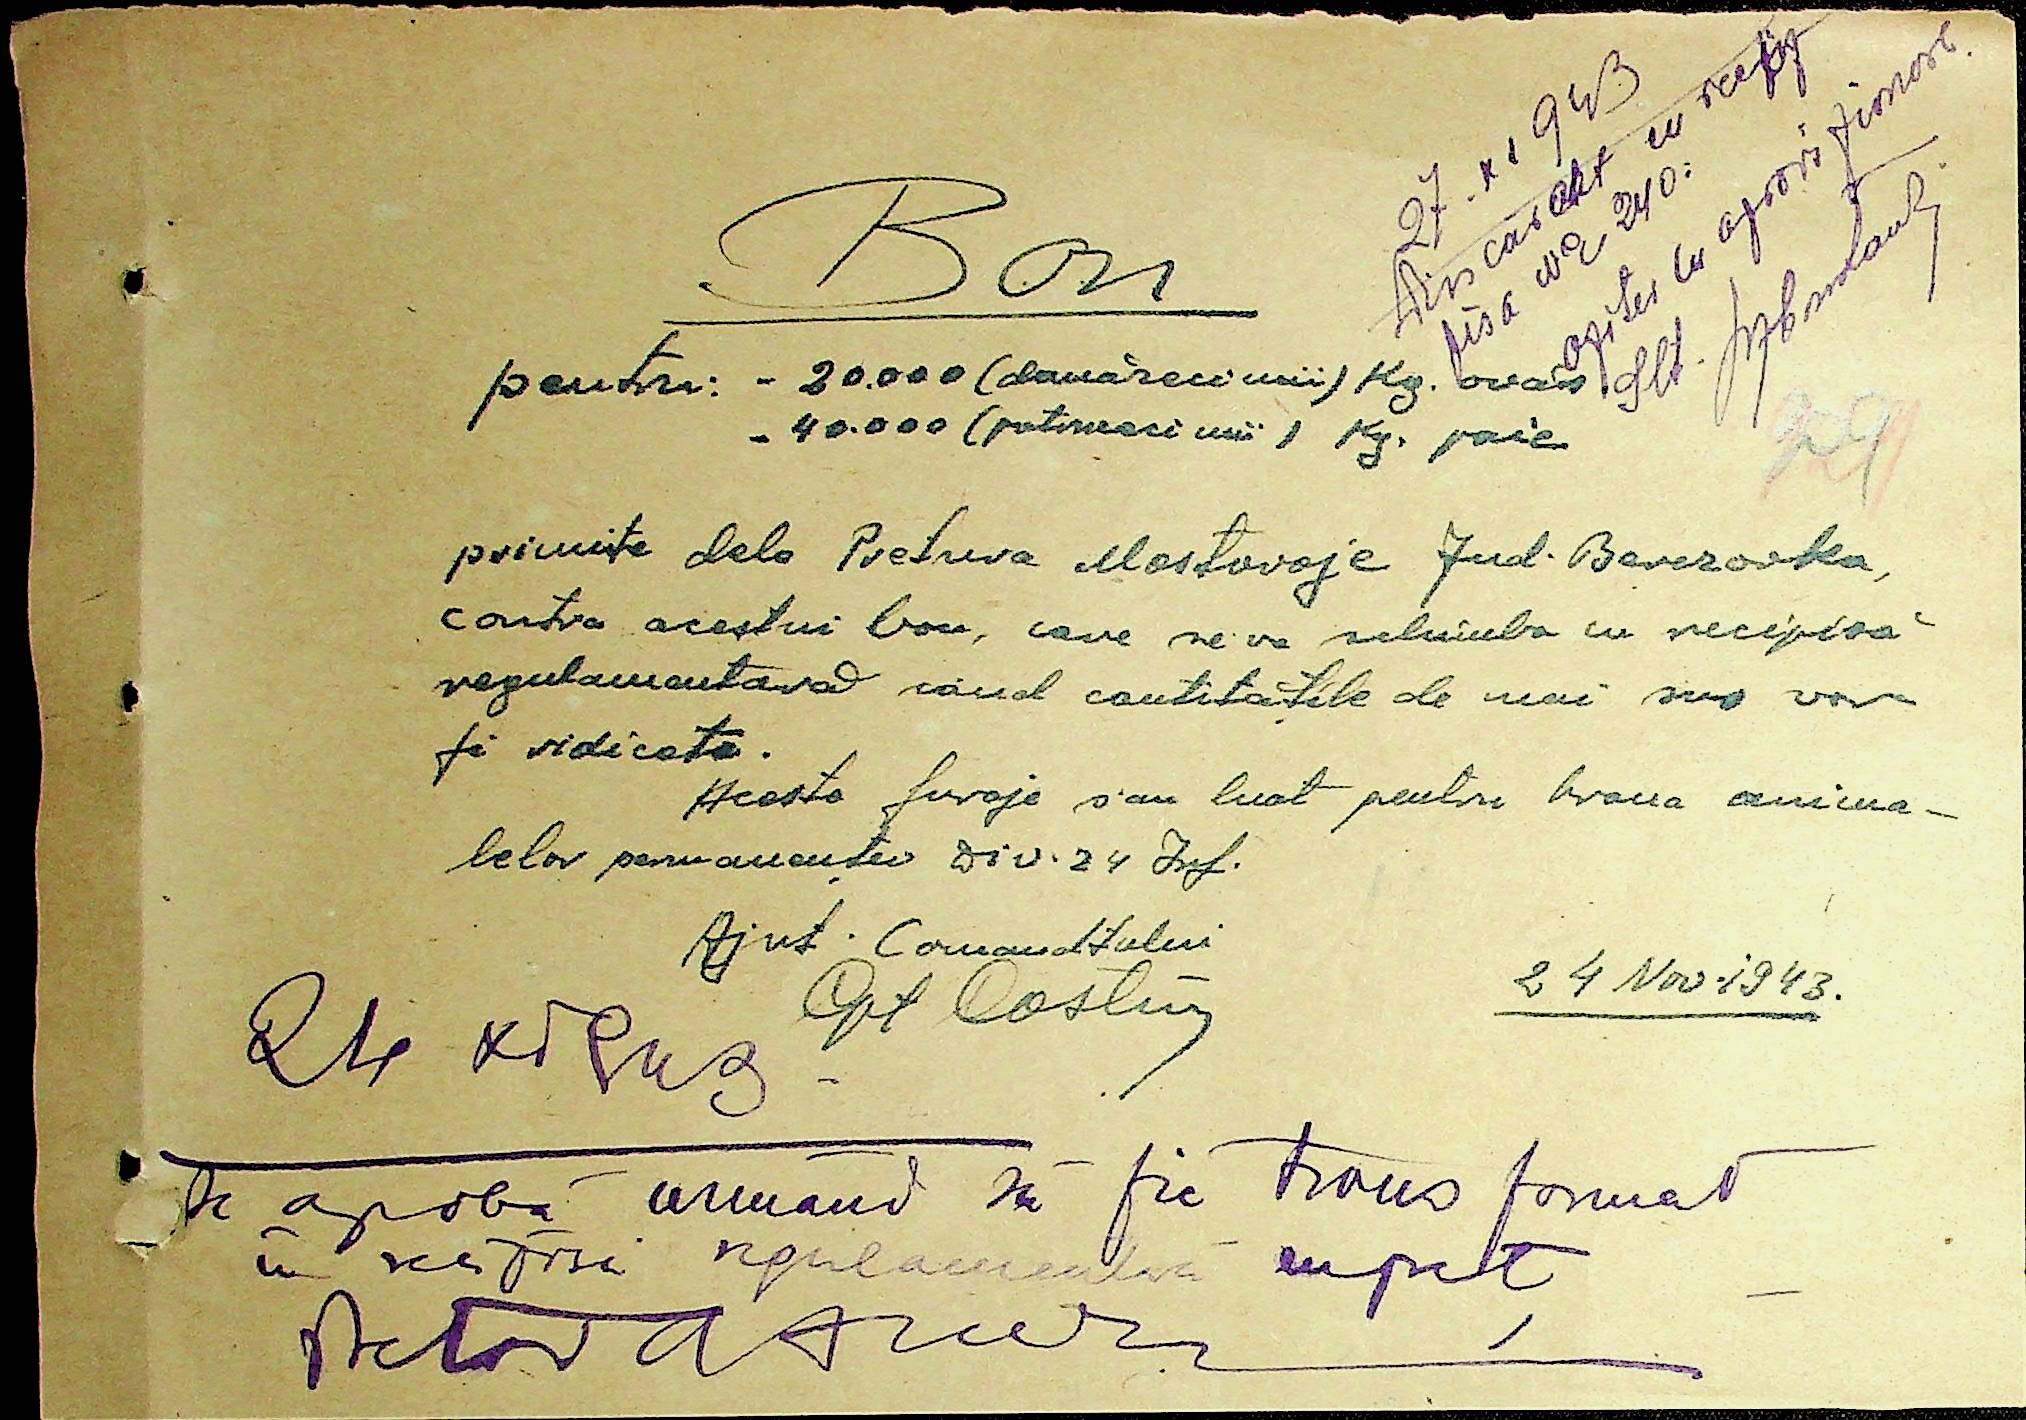 27.XI 943
Descarcat cu recip
fisa No 240.
ofiter cu aprovizionare.
Slt.
Bon
pentru: - 20.000 (douăzeci mii) Kg. orăz
- 40.000 (patruzeci mii) Kg. paie
329
primite dela Pretura Mostovoje Jud. Berezovka,
contra acestui bon, care se va schimba cu recipisă
regulamentară când cantitățile de mai sus vor
fi ridicate.
Aceste furaje s'au luat pentru hrana anima-
lelor permanente Div. 24 Inf.
Ajut. Comandtului
Cpt Costin
24 Nov. 1943.
24 XI 943
Se aprobă urmând să fie transformat
în recipisă regulamentară
Pretor